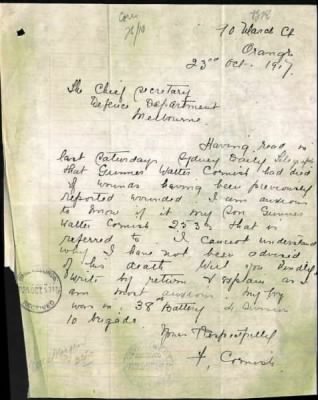 10 March St
Orange
23rd Oct. 1917.
The Chief Secretary
Defence Department
Melbourne.
Having read in
last Saturdays Sydney Daily Telegraph
that Gunner Walter Cornish had died
of wounds having been previously
reported wounded I am anxious
to know if it my Son Gunner
Walter Cornish 2536 that is
referred to I cannot understand
why I have not been advised
of his death Will you kindly
write by return & explain as I
am most anxious my boy
was in 38 Battery
10 brigade
Yours Respectfully
Cornish